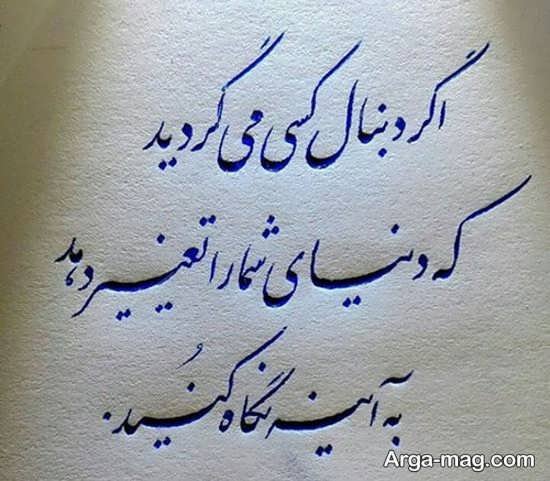 اگر دنبال کسی می گردید
که دنیای شما را تغییر دهد
به آینه نگاه کنید.
Arga-mag.com